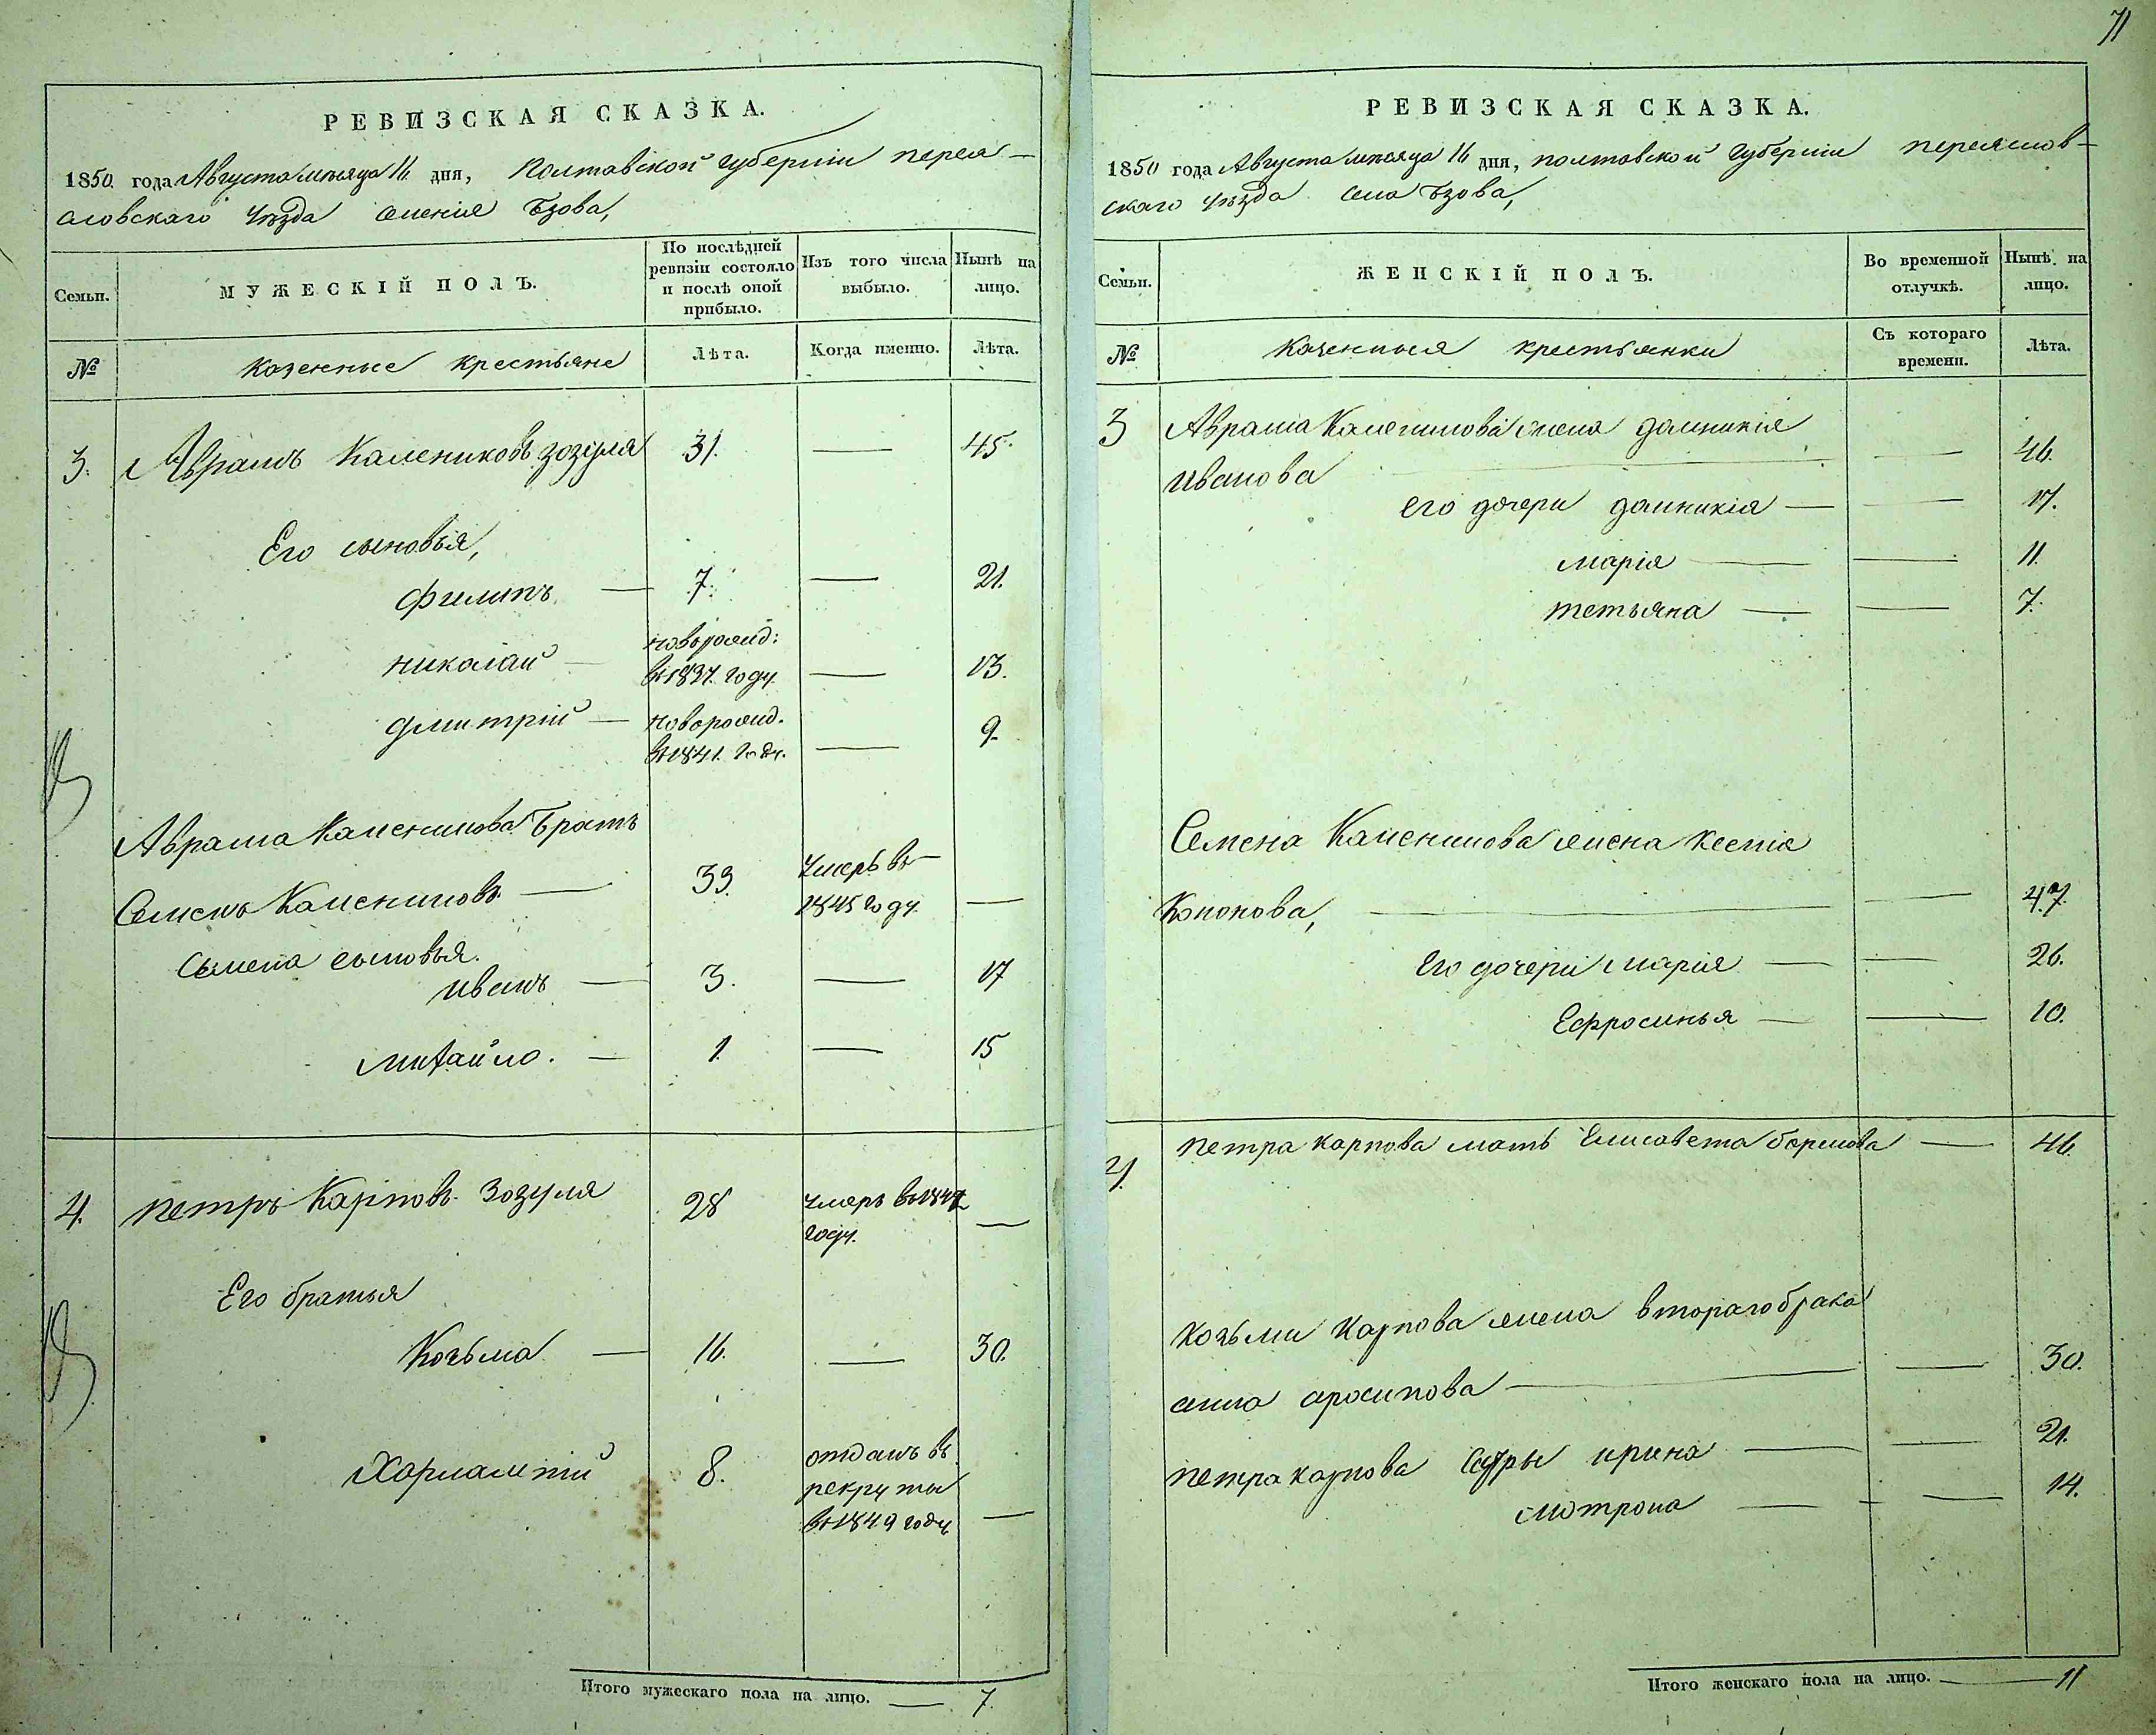 71
РЕВИЗСКАЯ СКАЗКА.
1850 года Августа месяца 16 дня, Полтавской Губернии Перея-
словскаго уѣзда селения Бзова,
Семьи.
МУЖЕСКІЙ ПОЛЪ.
По послѣдней ревизіи состояло и послѣ оной прибыло.
Изъ того числа выбыло.
Нынѣ на лицо.
№
Казенные крестьяне
Лѣта.
Когда именно.
Лѣта.
3. Аврамъ Калениковъ Зозуля 31. — 45.
Его сыновья,
Филипъ — 7. — 21.
Николай — новорожд: въ 1837. году — 13.
Дмитрій — новорожд. въ 1841. году. — 9.
Аврама Каленикова Братъ
Семенъ Калениковъ — 33. умеръ въ 1845 году —
Семена сыновья.
Иванъ — 3. — 17
Михайло. — 1. — 15
4. Петръ Карповъ Зозуля 28 умеръ въ году. —
Его братья
Козьма — 16. — 30.
Харлампій 8. отданъ въ рекруты въ 1849 году —
Итого мужескаго пола на лицо. — 7.
РЕВИЗСКАЯ СКАЗКА.
1850 года Августа месяца 16 дня, Полтавской Губернии Переяслов-
скаго уѣзда села Бзова,
Семьи.
ЖЕНСКІЙ ПОЛЪ.
Во временной отлучкѣ.
Нынѣ на лицо.
№
Казенныя крестьянки
Съ котораго времени.
Лѣта.
3 Аврама Каленикова жена Домникія
Иванова — 46.
его дочери Домникія — — 17.
Марія — — 11.
Тетьяна — — 7.
Семена Каленикова жена Ксенія
Кононова, — — 47.
Его дочери Марія — — 26.
Ефросинья — — 10.
4. Петра Карпова мать Елисавета — 46.
Козьми Карпова жена втораго брака
Анна — — 30.
Петра Карпова сестры Ирина — — 21.
Мотрона — — 14.
Итого женскаго пола на лицо. — 11